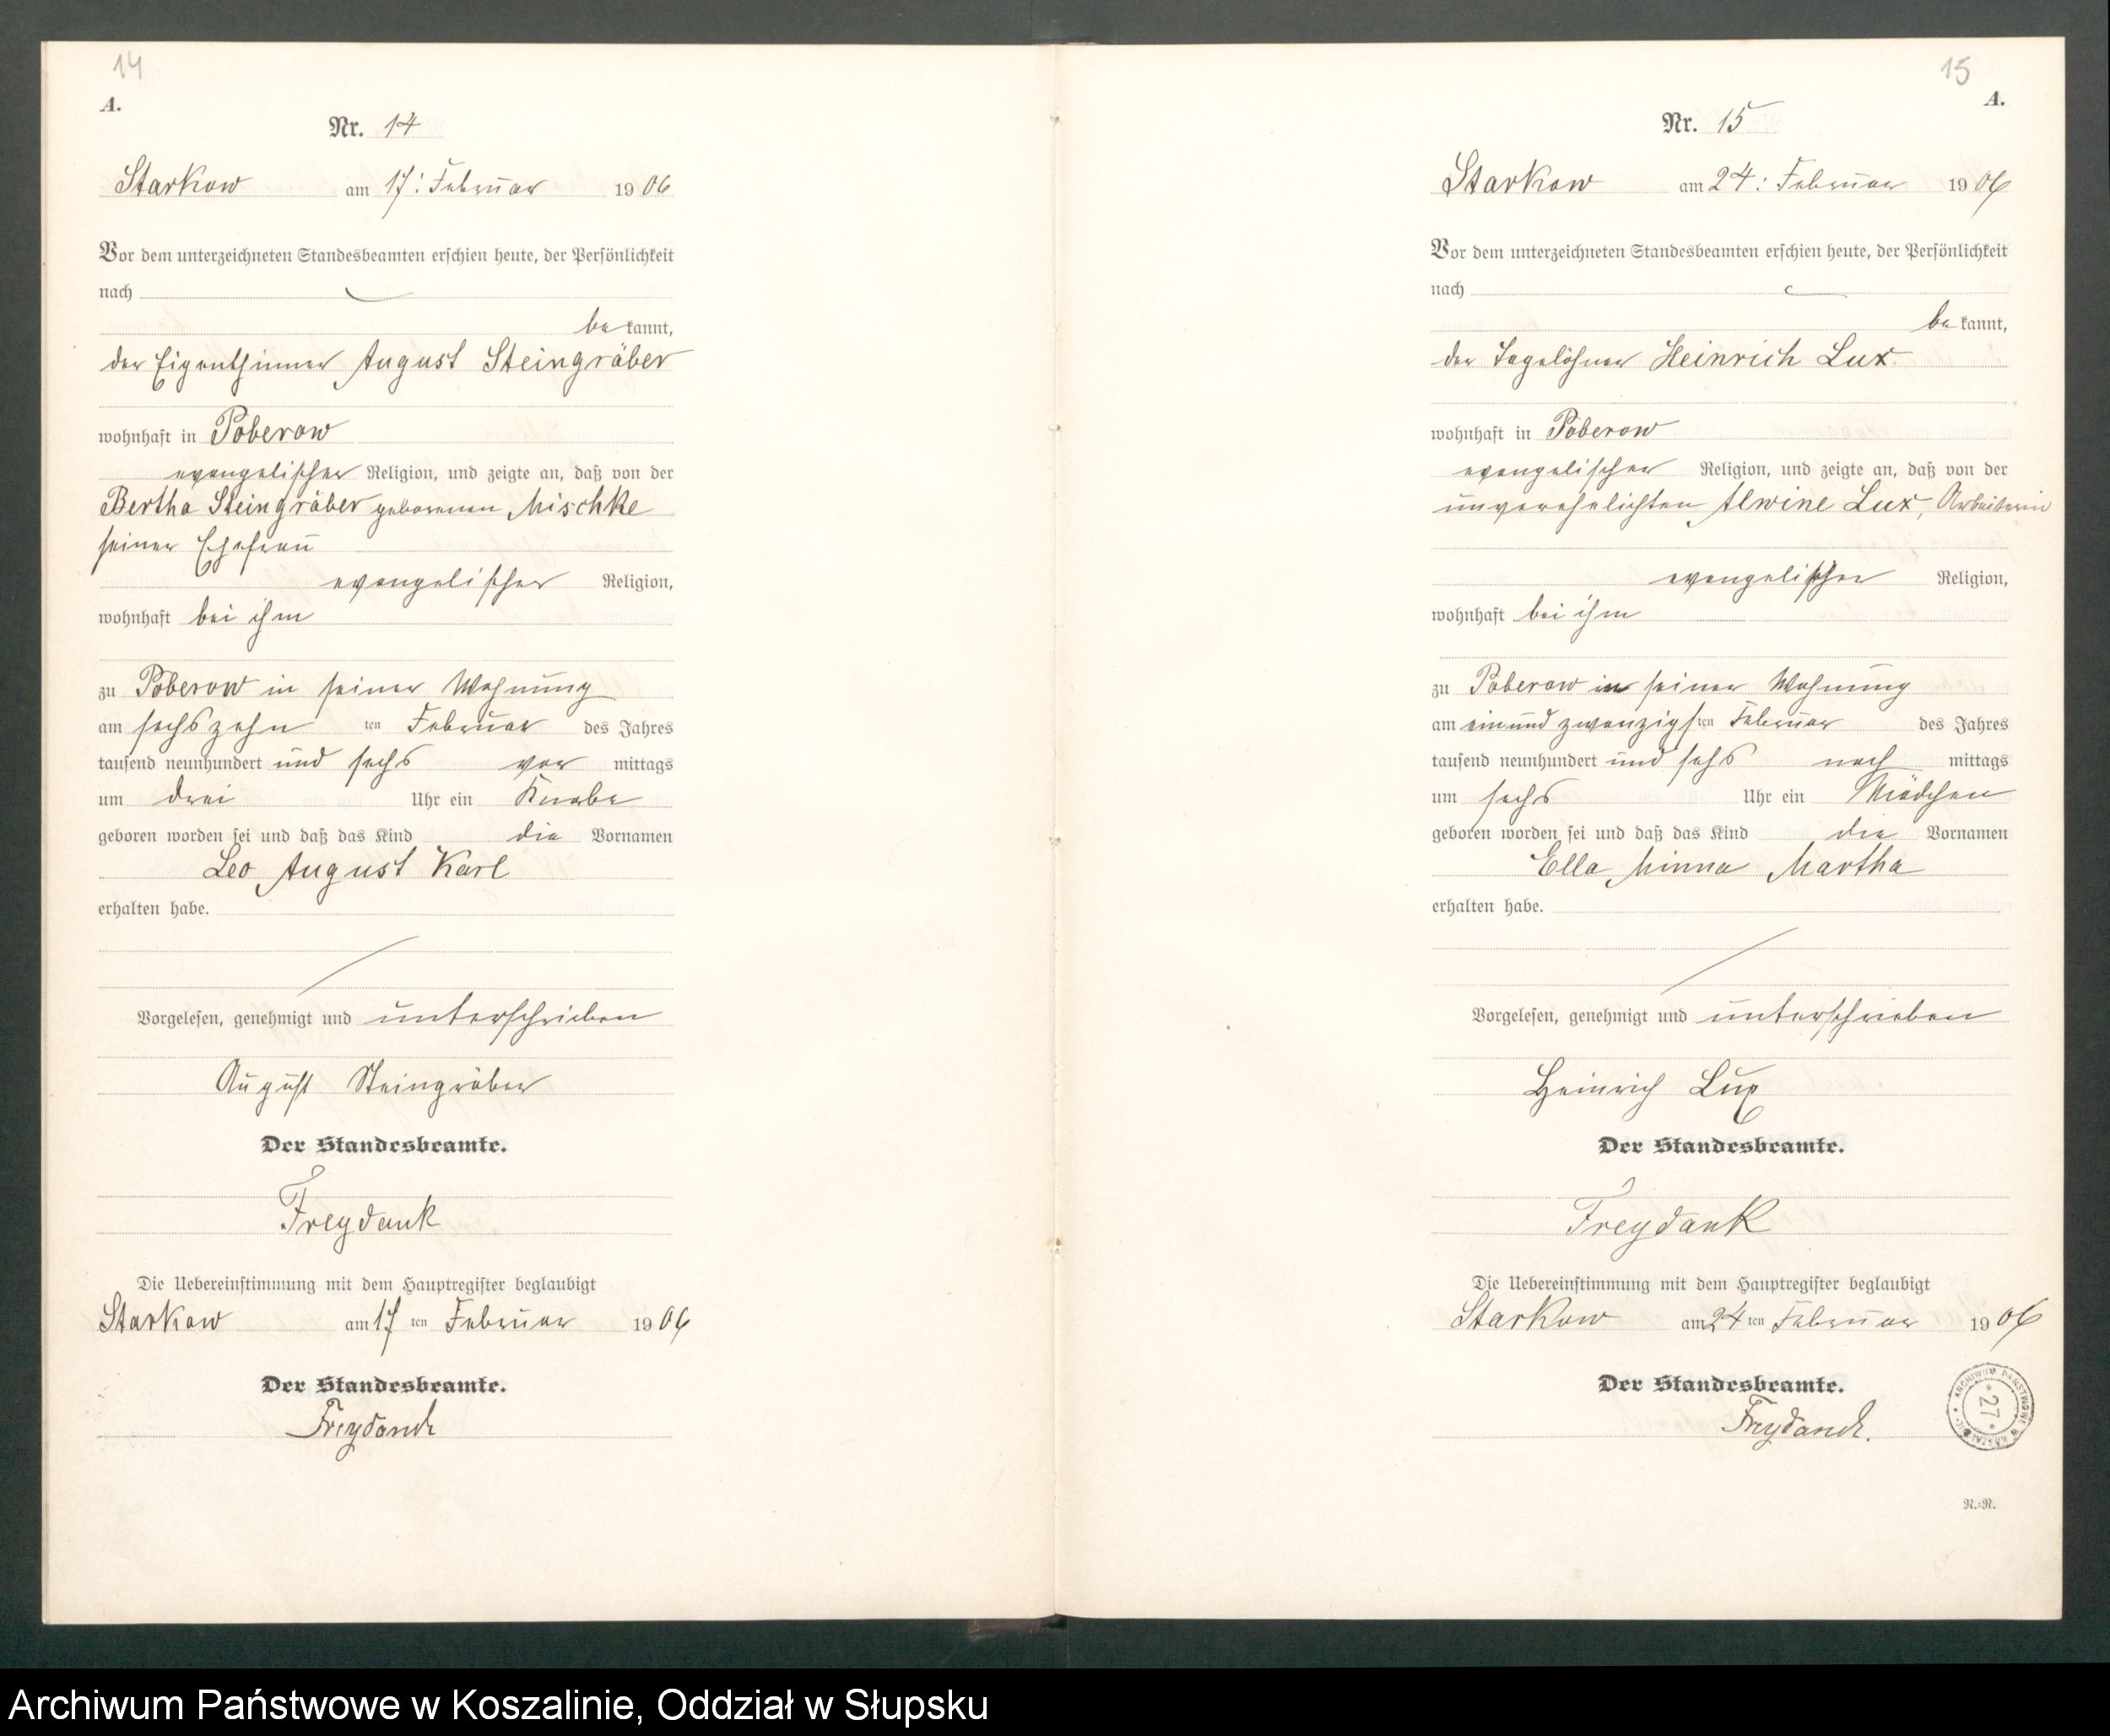 14
A.
Nr. 14
Starkow am 17: Februar 1906
Vor dem unterzeichneten Standesbeamten erschien heute, der Persönlichkeit
nach
bekannt,
der Eigenthümer August Steingräber
wohnhaft in Poberow
evangelischer Religion, und zeigte an, daß von der
Bertha Steingräber geborenen Mischke
seiner Ehefrau
evangelischer Religion,
wohnhaft bei ihm
zu Poberow in seiner Wohnung
am sechszehn ten Februar des Jahres
tausend neunhundert und sechs vor mittags
um drei Uhr ein Knabe
geboren worden sei und daß das Kind die Vornamen
Leo August Karl
erhalten habe.
Vorgelesen, genehmigt und unterschrieben
August Steingräber
Der Standesbeamte.
Freydank
Die Uebereinstimmung mit dem Hauptregister beglaubigt
Starkow am 17 ten Februar 1906
Der Standesbeamte.
Freydank
15
A.
Nr. 15
Starkow am 24: Februar 1906
Vor dem unterzeichneten Standesbeamten erschien heute, der Persönlichkeit
nach
bekannt,
der Tagelöhner Heinrich Lux
wohnhaft in Poberow
evangelischer Religion, und zeigte an, daß von der
unverehelichten Alwine Lux, Arbeiterin
evangelischer Religion,
wohnhaft bei ihm
zu Poberow in seiner Wohnung
am einundzwanzigsten Februar des Jahres
tausend neunhundert und sechs nach mittags
um sechs Uhr ein Mädchen
geboren worden sei und daß das Kind die Vornamen
Ella Minna Martha
erhalten habe.
Vorgelesen, genehmigt und unterschrieben
Heinrich Lux
Der Standesbeamte.
Freydank
Die Uebereinstimmung mit dem Hauptregister beglaubigt
Starkow am 24 ten Februar 1906
Der Standesbeamte.
Freydank.
ARCHIWUM PAŃSTWOWE W KOSZALINIE
* 27 *
N.=N.
Archiwum Państwowe w Koszalinie, Oddział w Słupsku